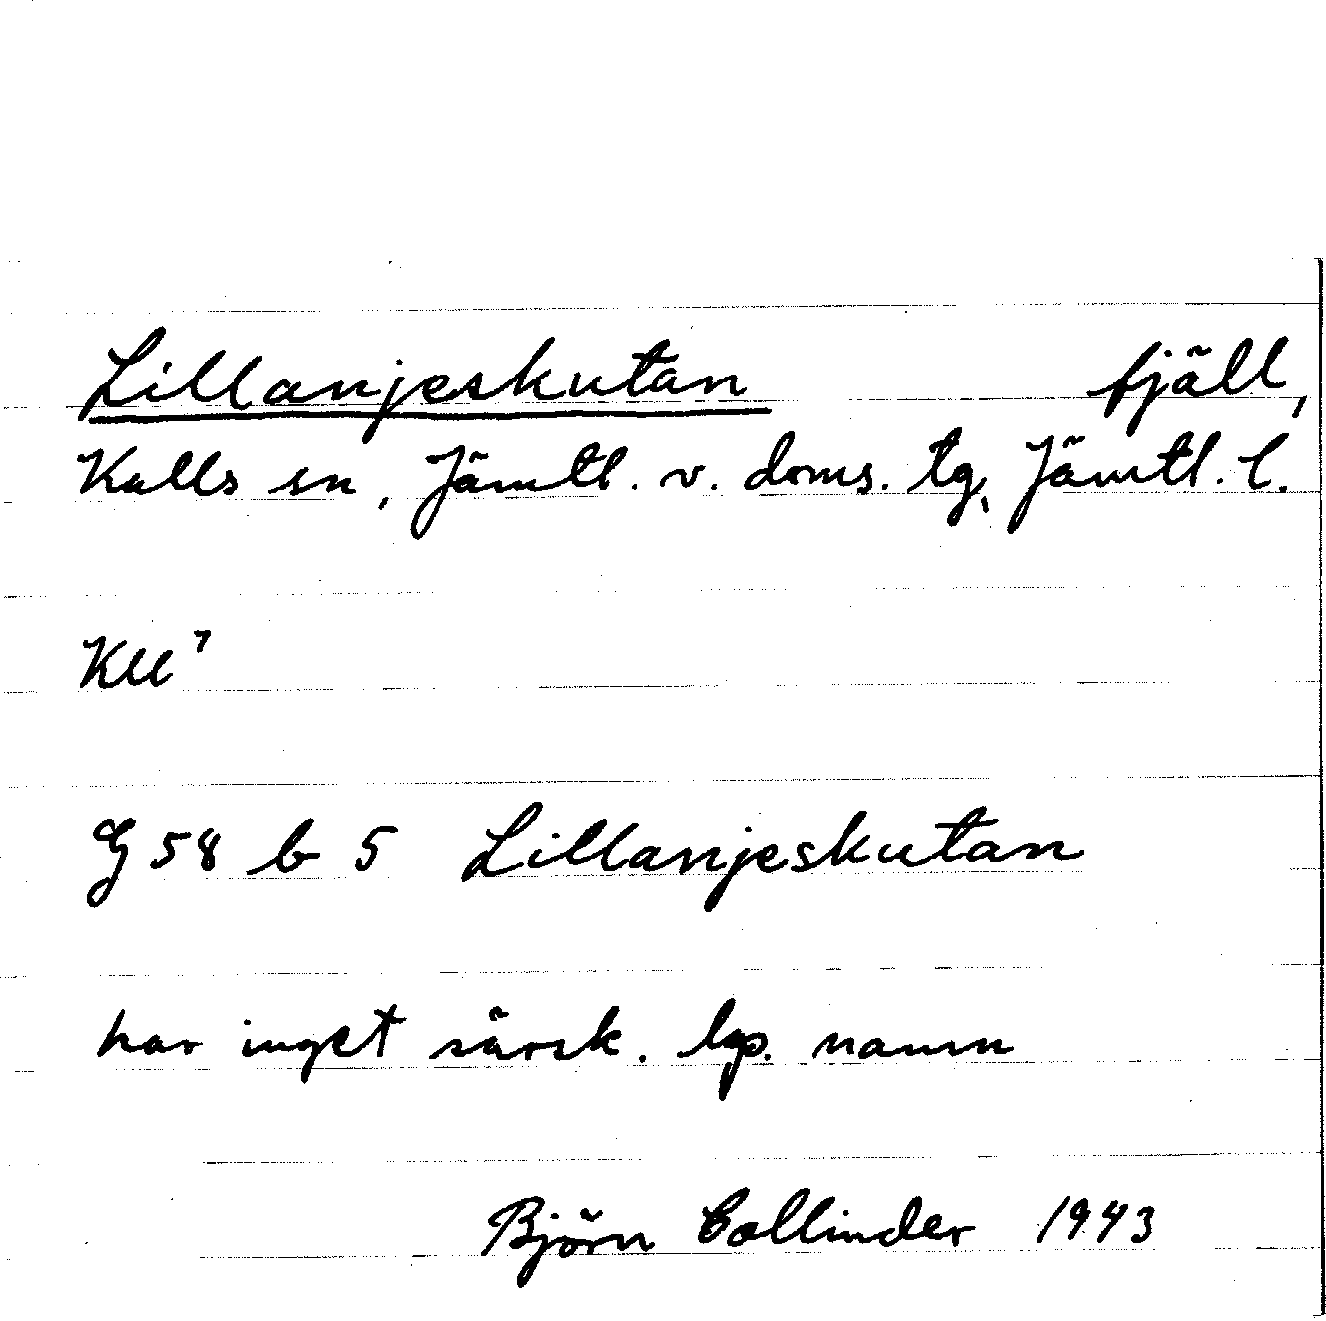 Lillanjeskutan fjäll,
Kalls sn, Jämtl. v. doms. tg, Jämtl. l.
Kll⁷
G 58 b 5 Lillanjeskutan
har inget särsk. lap. namn
Björn Collinder 1943